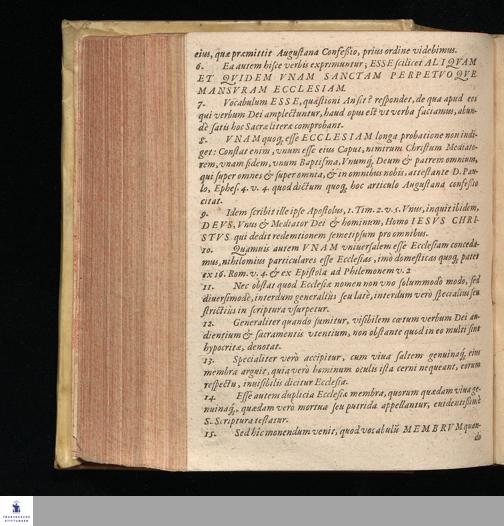 eius, quæ præmittit Augustana Confessio, prius ordine videbimus.
6. Ea autem hisce verbis exprimuntur; ESSE scilicet ALIQVAM
ET QVIDEM VNAM SANCTAM PERPETVOQVE
MANSVRAM ECCLESIAM.
7. Vocabulum ESSE, quæstioni An sit? respondet, de qua apud eos
qui verbum Dei amplectuntur, haud opus est vt verba faciamus, abun-
dè satis hoc Sacræ literæ comprobant.
8. VNAM quoq; esse ECCLESIAM longa probatione non indi-
get: Constat enim, vnum esse eius Caput, nimirum Christum Mediato-
rem, vnam fidem, vnum Baptisma, Vnumq; Deum & patrem omnium,
qui super omnes & super omnia, & in omnibus nobis, attestante D. Pau-
lo, Ephes. 4. v. 4. quod dictum quoq; hoc articulo Augustana confessio
citat.
9. Idem scribit ille ipse Apostolus, 1. Tim. 2. v. 5. Vnus, inquit ibidem,
DEVS, Vnus & Mediator Dei & hominum, Homo IESVS CHRI-
STVS qui dedit redemtionem semetipsum pro omnibus.
10. Quamuis autem VNAM vniuersalem esse Ecclesiam concedi-
mus, nihilomius particulares esse Ecclesias, imò domesticas quoq; patet
ex 16. Rom. v. 4. & ex Epistola ad Philemonem v. 2
11. Nec obstat quod Ecclesiæ nomen non vno solummodo modo, sed
diuersimodè, interdum generaliùs seu latè, interdum verò specialius seu
strictiùs in scriptura vsurpetur.
12. Generaliter quando sumitur, visibilem cœtum verbum Dei au-
dientium & sacramentis vtentium, non obstante quod in eo multi sint
hypocritæ, denotat.
13. Specialiter verò accipitur, cum viua saltem genuinaq; eius
membra arguit, quia verò hominum oculis ista cerni nequeant, eorum
respectu, inuisibilis dicitur Ecclesia.
14. Esse autem duplicia Ecclesiæ membra, quorum quædam viua ge-
nuinaq;, quædam vero mortua seu putrida appellantur, euidentissimè
S. Scriptura testatur.
15. Sed hîc monendum venit, quod vocabulũ MEMBRVM quan-
do
FRANCKESCHE
STIFTUNGEN